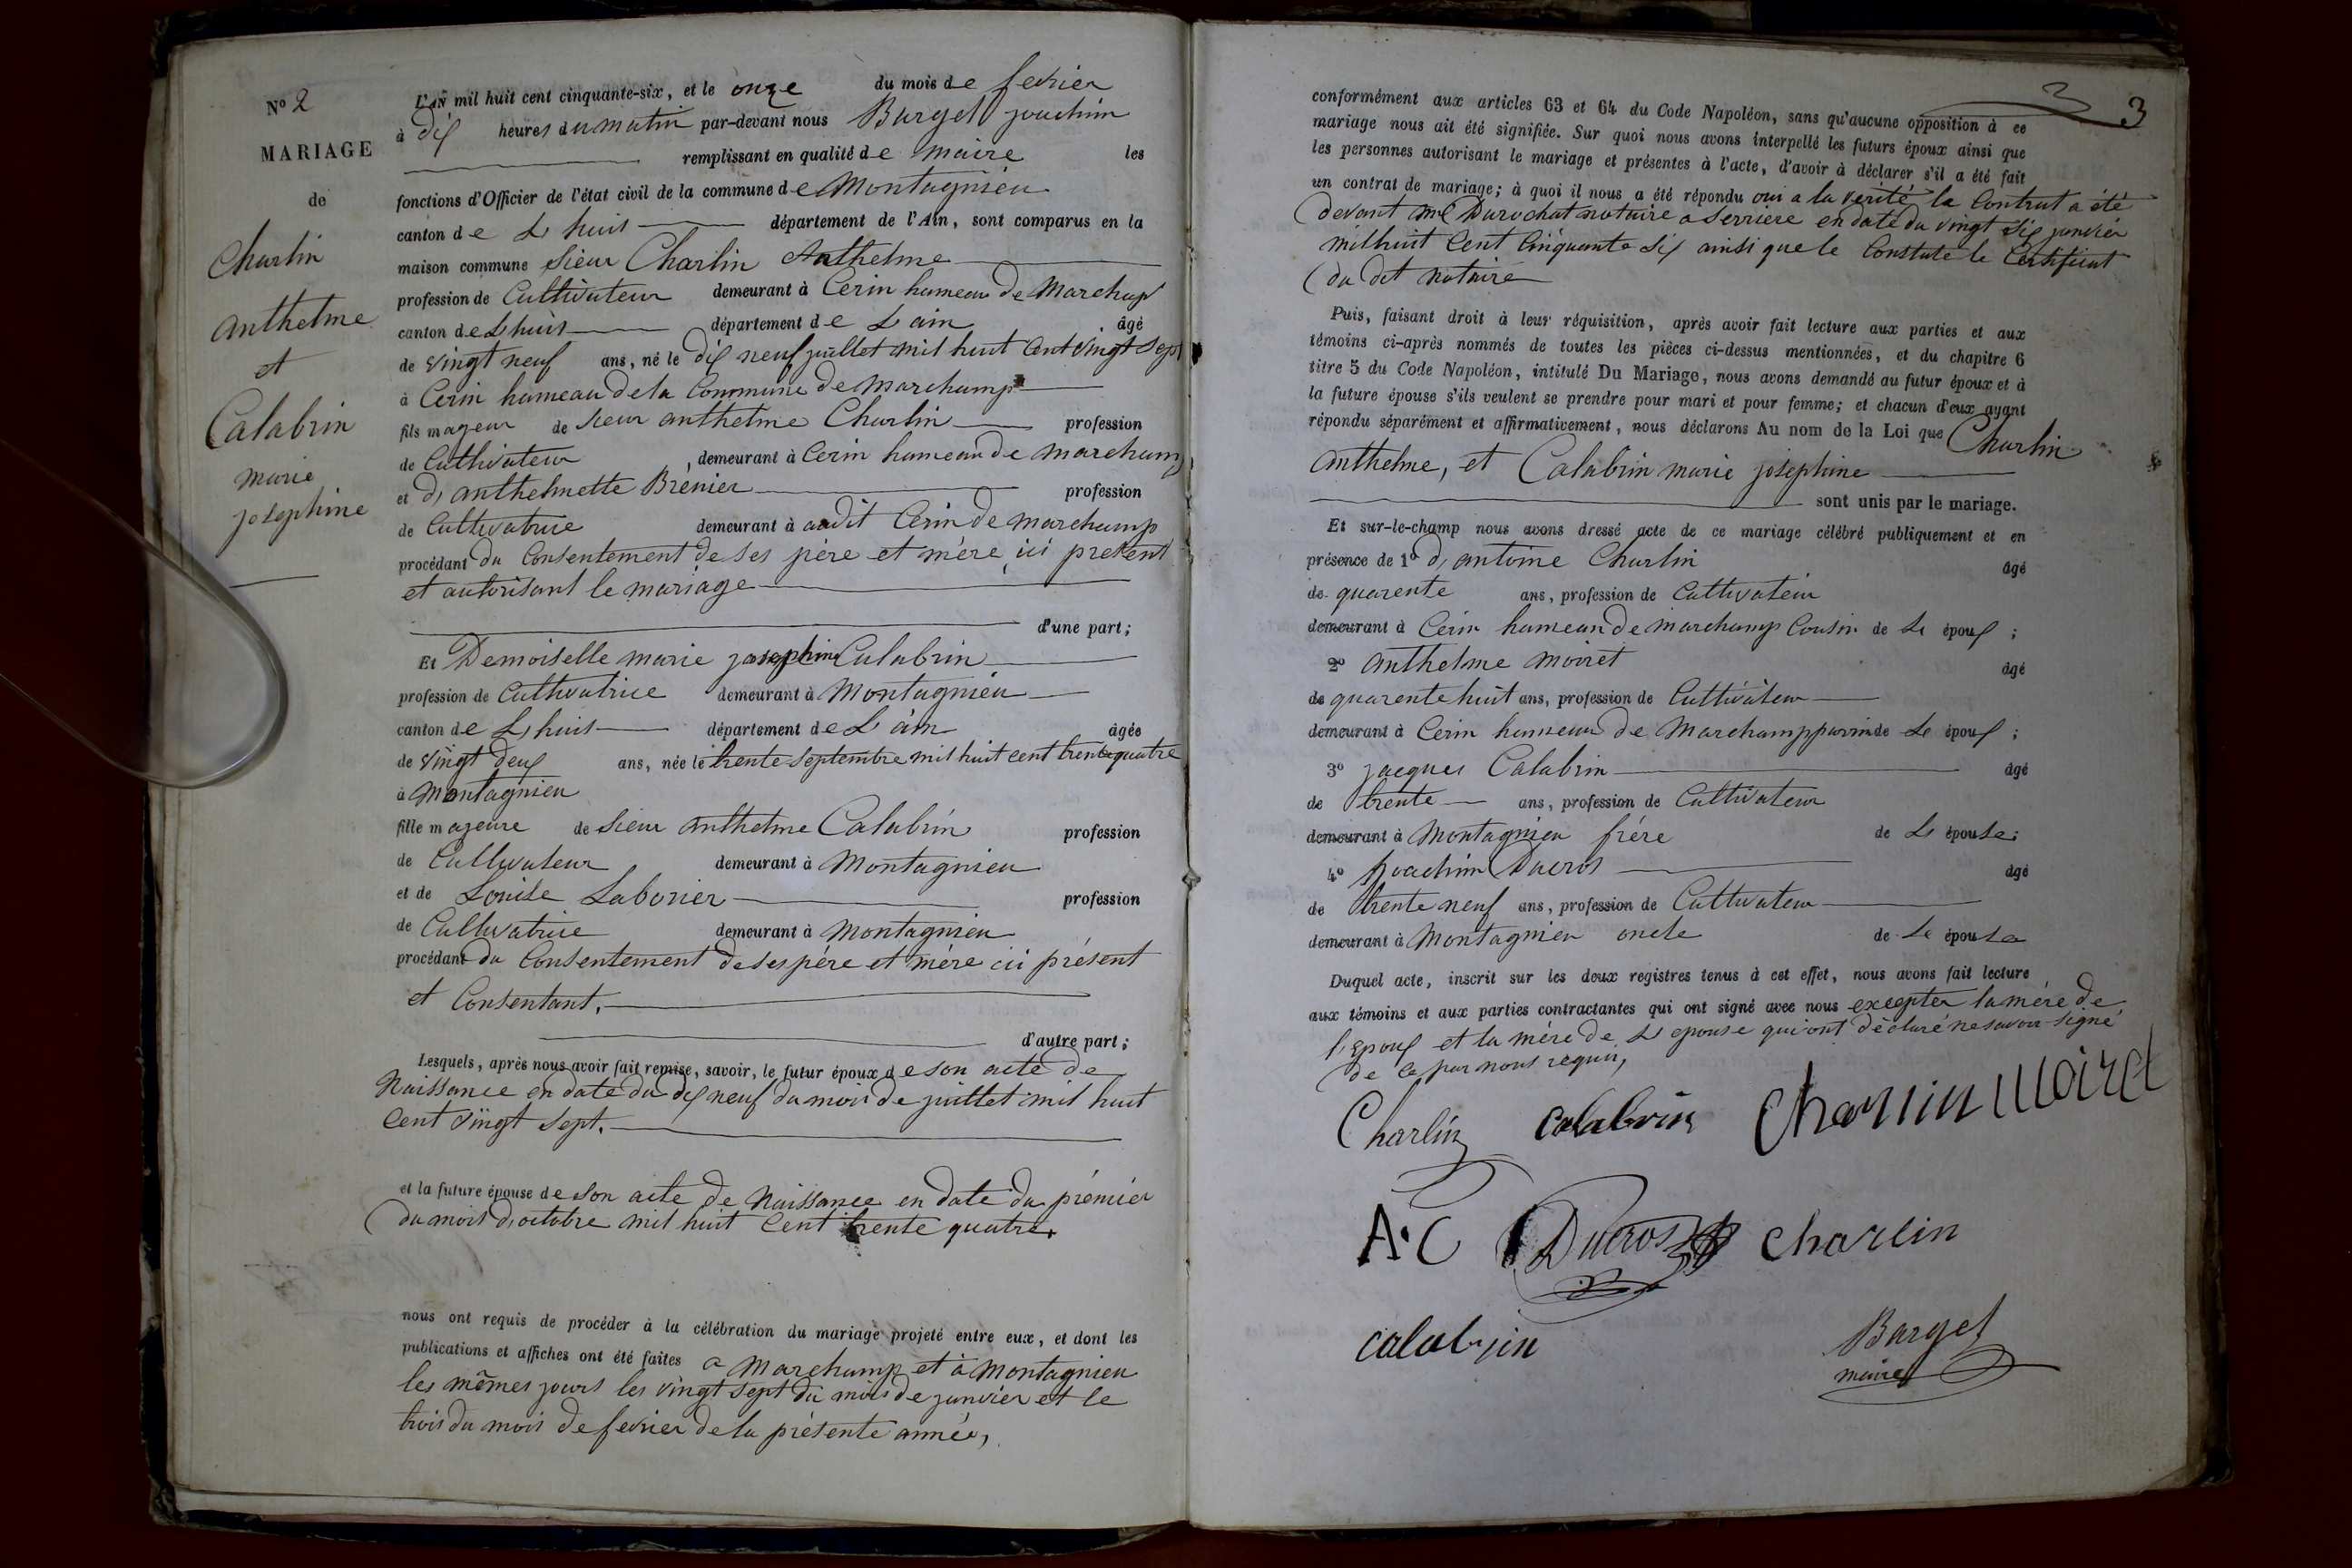 N° 2
MARIAGE
de
Charlin
anthelme
et
Calabrin
marie
josephine
L'an mil huit cent cinquante-six, et le onze du mois de fevrier
à dix heures du matin par-devant nous Burget joachim
remplissant en qualité de maire les
fonctions d'Officier de l'état civil de la commune de Montagnieu
canton de L huis département de l'Ain, sont comparus en la
maison commune sieur Charlin Anthelme
profession de Cultivateur demeurant à Cerin hameau de Marchamp
canton de Lhuis département de L ain âgé
de vingt neuf ans, né le dix neuf juillet mil huit cent vingt sept
à Cerin hameau de la Commune de Marchamp
fils mageur de sieur anthelme Charlin profession
de Cultivateur, demeurant à Cerin hameau de marchamp
et d, anthelmette Brénier profession
de Cultivatrice demeurant à audit Cerin de marchamp
procédant du Consentement de ses père et mère, ici present
et autorisant le mariage
d'une part;
Et Demoiselle marie josephine Calabrin
profession de Cultivatrice demeurant à Montagnieu
canton de L huis département de L ain âgée
de vingt deux ans, née le trente septembre mil huit cent trente quatre
à Montagnieu
fille mageure de sieur anthelme Calabrin profession
de Cultivateur demeurant à Montagnieu
et de Louise Laborier profession
de Cultivatrice demeurant à Montagnieu
procédant du Consentement de ses père et mère ici présent
et Consentant.
d'autre part;
Lesquels, après nous avoir fait remise, savoir, le futur époux de son acte de
Naissance en date du dix neuf du mois de juillet mil huit
Cent vingt sept.
et la future épouse de son acte de Naissance en date du prémier
du mois d, octobre mil huit Cent trente quatre.
nous ont requis de procéder à la célébration du mariage projeté entre eux, et dont les
publications et affiches ont été faites a Marchamp et à Montagnieu
les mêmes jours les vingt sept du mois de janvier et le
trois du mois de fevrier de la présente année,
3 3
conformément aux articles 63 et 64 du Code Napoléon, sans qu'aucune opposition à ce
mariage nous ait été signifiée. Sur quoi nous avons interpellé les futurs époux ainsi que
les personnes autorisant le mariage et présentes à l'acte, d'avoir à déclarer s'il a été fait
un contrat de mariage; à quoi il nous a été répondu oui a la vérité le Contrat a été
devant me Durochat notaire a serriere en date du vingt six janvier
mil huit Cent Cinquante six ainsi que le Constate le Certificat
du dit notaire
Puis, faisant droit à leur réquisition, après avoir fait lecture aux parties et aux
témoins ci-après nommés de toutes les pièces ci-dessus mentionnées, et du chapitre 6
titre 5 du Code Napoléon, intitulé Du Mariage, nous avons demandé au futur époux et à
la future épouse s'ils veulent se prendre pour mari et pour femme; et chacun d'eux ayant
répondu séparément et affirmativement, nous déclarons Au nom de la Loi que Charlin
Anthelme, et Calabrin marie josephine
sont unis par le mariage.
Et sur-le-champ nous avons dressé acte de ce mariage célébré publiquement et en
présence de 1° d, antoine Charlin âgé
de quarente ans, profession de Cultivateur
demeurant à Cerin hameau de marchamp Cousin de L époux;
2° Anthelme moiret âgé
de quarente huit ans, profession de Cultivateur
demeurant à Cerin hameau de Marchamp parrin de L époux;
3° jacques Calabrin âgé
de trente ans, profession de Cultivateur
demeurant à Montagnieu frére de L épouse;
4° joachim Ducros âgé
de trente neuf ans, profession de Cultivateur
demeurant à Montagnieu oncle de L épouse
Duquel acte, inscrit sur les deux registres tenus à cet effet, nous avons fait lecture
aux témoins et aux parties contractantes qui ont signé avec nous excepter la mére de
l'Epoux et la mére de L epouse qui ont déclaré ne savoir signé
de ce par nous requis,
Charlin calabrin Charlin Moiret
A.C Ducros charlin
calabrin Burget
maire